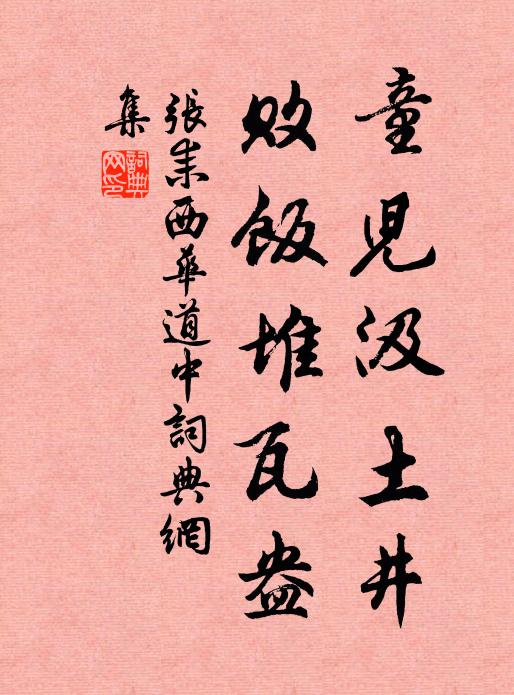 童兒汲土井
敗飯堆瓦盎
張耒西華道中詞典網
集
詞典
网印